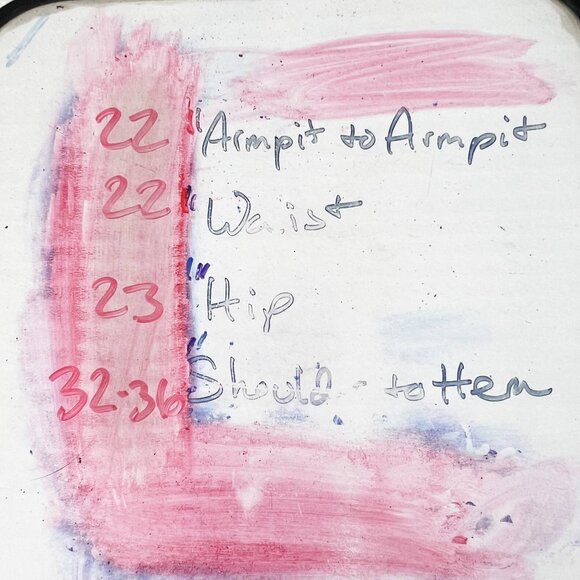 22 "Armpit to Armpit
22 " Waist
23 " Hip
32-36 " Should - to Hem